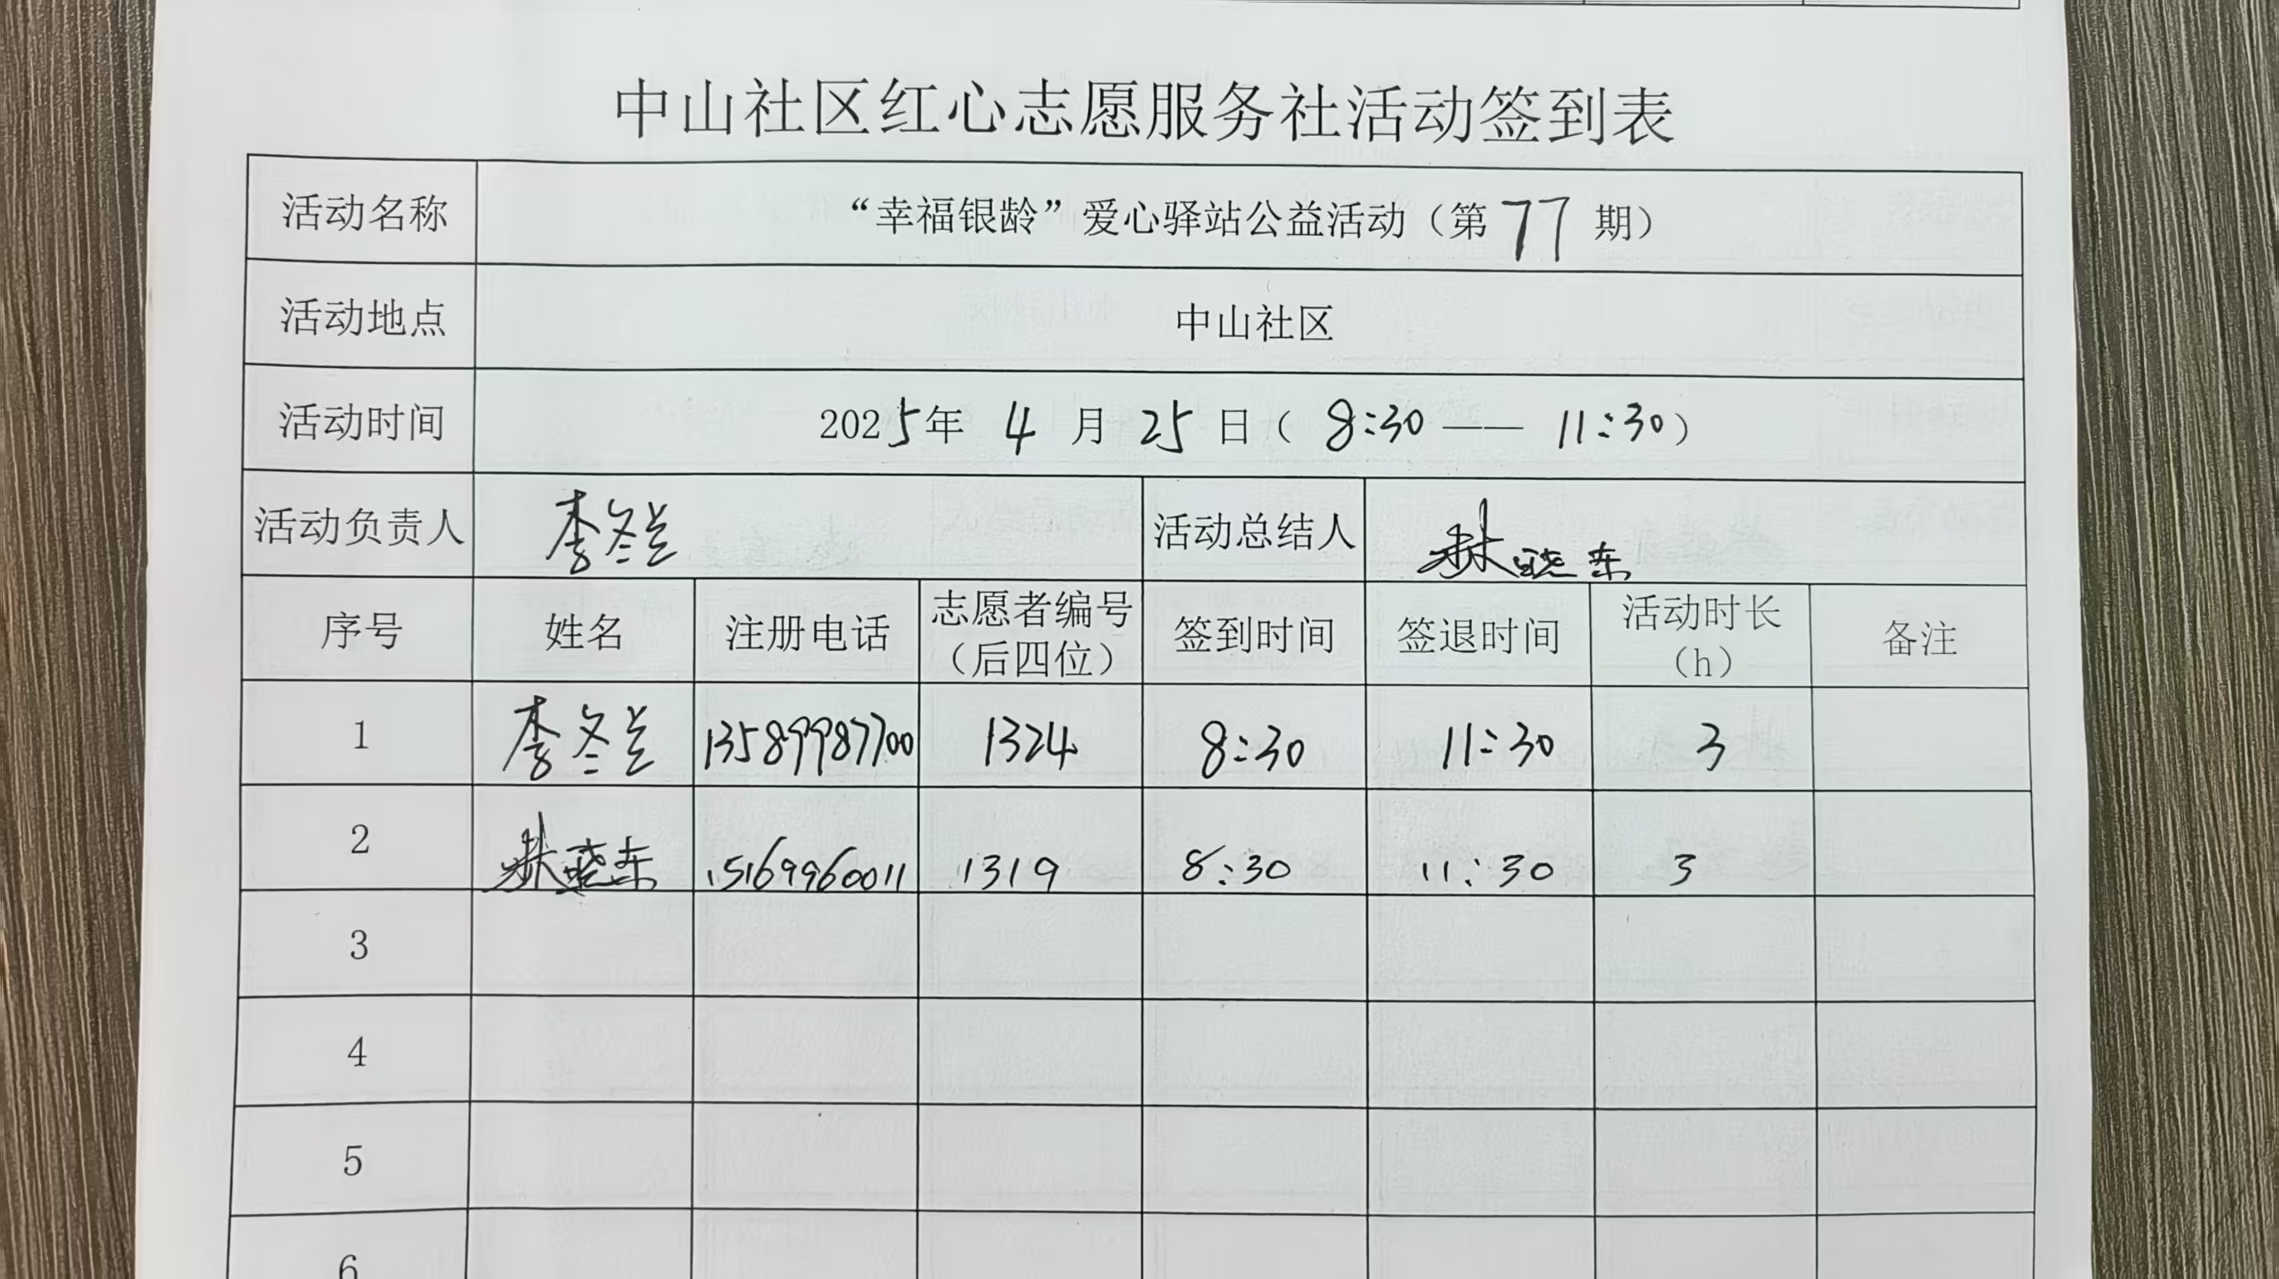 中山社区红心志愿服务社活动签到表
活动名称 “幸福银龄”爱心驿站公益活动（第 77 期）
活动地点 中山社区
活动时间 2025年 4 月 25 日（ 8:30 —— 11:30）
活动负责人 李冬兰 活动总结人 林晓东
序号 姓名 注册电话 志愿者编号（后四位） 签到时间 签退时间 活动时长（h） 备注
1 李冬兰 13589987700 1324 8:30 11:30 3
2 林晓东 15169960011 1319 8:30 11:30 3
3
4
5
6